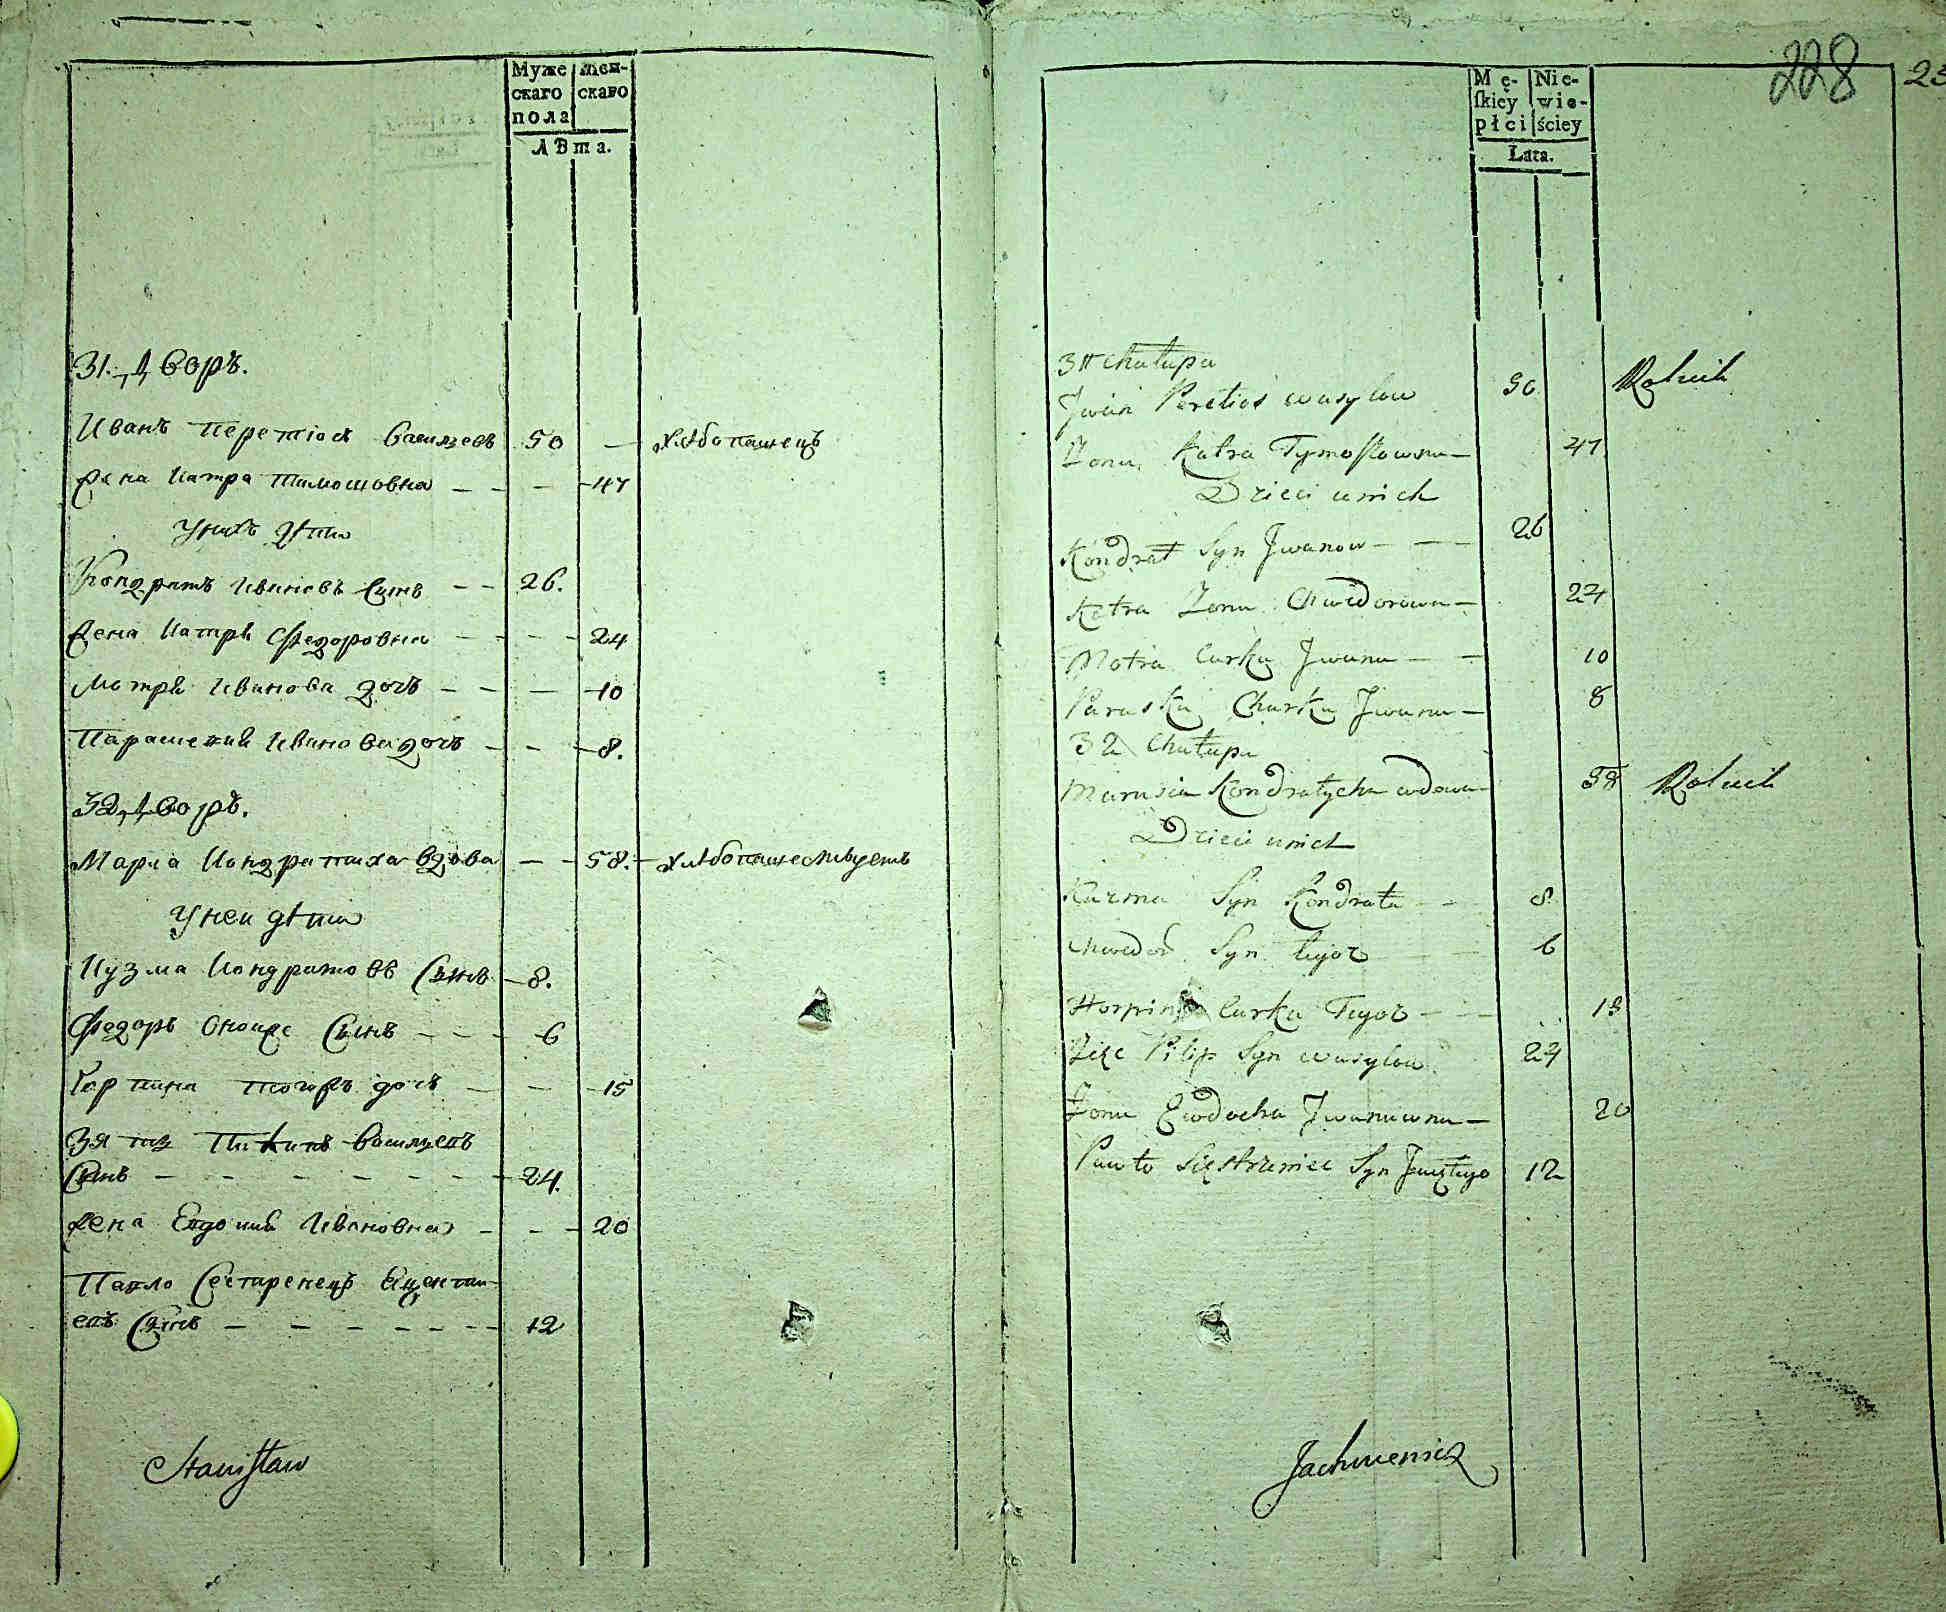 Муже
скаго
пола
жен-
скаго
лѣта.
31. Дворъ.
Иванъ Перетіох Васильевъ 50 — хлѣбопашецъ
Жена Катра Тимошовна — — — 47
У нихъ дѣти
Кондратъ Ивановъ Сынъ — — 26.
Жена Катря Федоровна — — — 24
Мотря Иванова дочь — — — 10
Параскія Иванова дочь — — — 8.
32. Дворъ.
Марꙗ Кондратиха вдова — — 58. — хлѣбопашествуетъ
У ней дѣти
Кузма Кондратовъ Сынъ — 8.
Федоръ Оной же Сынъ — — — 6
Горпина тогожъ дочь — — — 15
Зять Пилипъ Васильевъ
Сынъ — — — — — — — 24.
Жена Евдокия Ивановна — — — 20
Павло Сестренецъ
евъ Сынъ — — — — — — 12
Stanisław
228
23
Mę-
skiey
płci
Nie-
wie-
ściey
Lata.
31 Chałupa
Jwan Peretios wasylow 50 Rolnik
Zona Katra Tymoszowna — 47
Dzieci u nich
Kondrat Syn Jwanow — — 26
Katra Zona Chwedorowa — 24
Motra Curka Jwana — — 10
Paraska Churka Jwana — 8
32 Chałupa
Marusia Kondratycha wdowa — 58 Rolnik
Dzieci u nich
Kuzma Syn Kondrata — — 8.
Chwedor Syn tegoz — — 6
Horpina Curka Tegoz — — 15
Zięc Pilip Syn wasylow 24
Zona Ewdocha Jwanowna — 20
Pawło Sięstrzeniec Syn 12
Jachimowicz